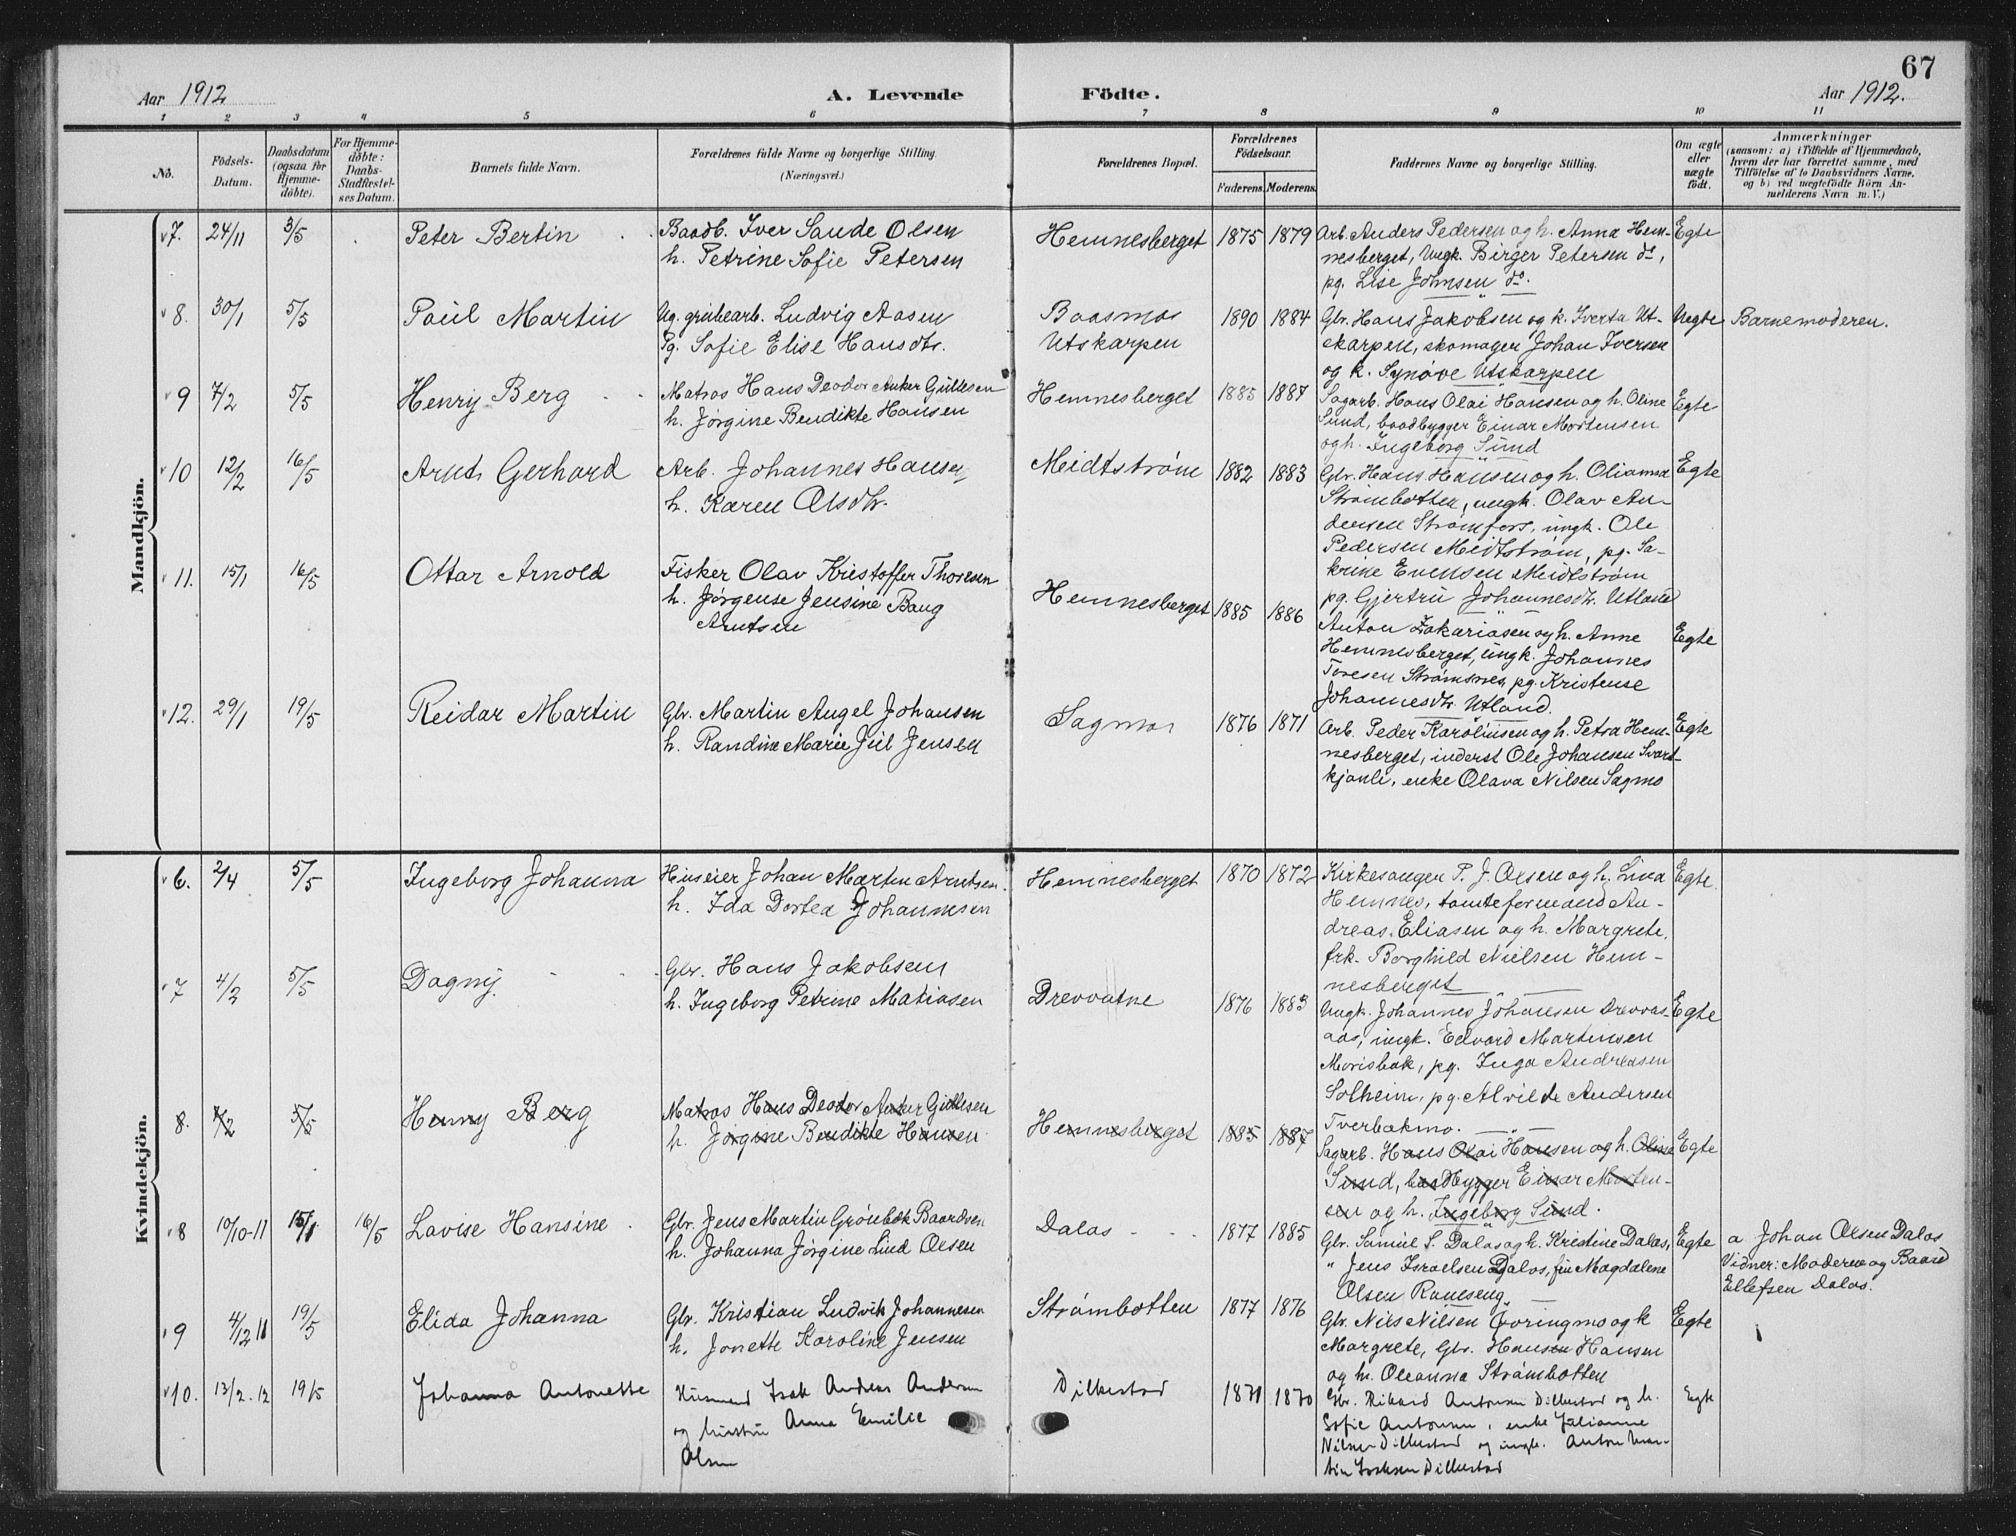 67
Aar 1912
A. Levende
Födte.
Aar 1912.
1 2 3 4 5 6 7 8 9 10 11
No.
Födsels-Datum.
Daabsdatum (ogsaa for Hjemme-döbte).
For Hjemme-döbte: Daabs-Stadfæstel-ses Datum.
Barnets fulde Navn.
Forældrenes fulde Navne og borgerlige Stilling.
(Næringsvei.)
Forældrenes Bopæl.
Forældrenes Födselsaar.
Faderens. Moderens.
Faddernes Navne og borgerlige Stilling.
Om ægte eller uægte födt.
Anmærkninger
(saasom: a) i Tilfælde af Hjemmedaab, hvem der har forrettet samme, med Tilföielse af to Daabsvidners Navne, og b) ved uægtefödte Börn An-melderens Navn m. V.)
Mandkjön.
7. 24/11 3/5 Peter Bertin
Baadb. Iver Sande Olsen
h. Petrine Sofie Petersen
Hemnesberget 1875 1879
Arb. Anders Pedersen og h. Anna Hem-
nesberget, Ungk. Birger Petersen do,
pg. Lise Johnsen do.
Egte
8. 30/1 5/5 Paul Martin
Ug. grubearb. Ludvig Aasen
Pg. Sofie Elise Hansdtr.
Baasmo
Utskarpen
1890 1884
Gbr. Hans Jakobsen og k. Iverta Ut-
skarpen, skomager Johan Iversen
og k. Synøve Utskarpen
Uegte
Barnemoderen.
9 7/2 5/5 Henry Berg
Matros Hans Deodor Anker Gullesen
h. Jørgine Bendikte Hansen
Hemnesberget 1885 1887
Sagarb. Hans Olai Hansen og h. Oline
Sund, baadbygger Einar Mortensen
og h. Ingeborg Sund
Egte
10 12/2 16/5 Arnt Gerhard
Arb. Johannes Hansen
h. Karen Olsdtr.
Meidtstrøm 1882 1883
Gbr. Hans Hansen og h. Olianna
Strømbotten, ungk. Olav An-
densen Strømfors, ungk. Ole
Pedersen Meidtstrøm, pg. Sa-
krine Evensen Meidtstrøm
pg. Gjertru Johannesdtr. Utland
Egte
11. 15/1 16/5 Ottar Arnold
Fisker Olav Kristoffer Thoresen
h. Jørgense Jensine Baug
Arntsen
Hemnesberget 1885 1886
Anton Zakariasen og h. Anne
Hemnesberget, ungk. Johannes
Toresen Strømsnes, pg. Kristense
Johannesdtr. Utland.
Egte
12. 29/1 19/5 Reidar Martin
Gbr. Martin Angel Johansen
h. Randine Marie Jul Jensen
Sagmo 1876 1871
Arb. Peder Karolinsen og h. Petra Hem-
nesberget, inderst Ole Johansen Svart-
kjønli, enke Olava Nilsen Sagmo
Egte
Kvindekjön.
6. 2/4 5/5 Ingeborg Johanna
Huseier Johan Martin Arntsen
h. Ida Dortea Johannesen
Hemnesberget 1870 1872
Kirkesanger P. J. Olsen og h. Lina
Hemnes, tomteformand An-
dreas Eliasen og h. Margrete,
frk. Borghild Nielsen Hem-
nesberget
Egte
7 4/2 5/5 Dagny
Gbr. Hans Jakobsen
h. Ingeborg Petrine Matiasen
Drevvatne 1876 1883
Ungk. Johannes Johansen Drevvas-
aas, ungk. Edvard Martinsen
Morisbak, pg. Inga Andreasen
Solheim, pg. Alvilde Andersen
Tverbakmo.
Egte
8. 7/2 5/5 Henny Berg
Matros Hans Deodor Anker Gullesen
h. Jørgine Bendikte Hansen
Hemnesberget 1885 1887
Sagarb. Hans Olai Hansen og h. Oline
Sund, baadbygger Einar Morten-
sen og h. Ingeborg Sund.
Egte
8 10/10-11 15/1 16/5 Lovise Hansine
Gbr. Jens Martin Grönbek Baardsen
h. Johanna Jørgine Lind Olsen
Dalos 1877 1885
Gbr. Samuel S. Dalos og h. Kristine Dalos,
" Jens Israelsen Dalos, fru Magdalene
Olsen Raneseng
Egte
a Johan Olsen Dalos
Vidner: Moderen og Baard
Ellefsen Dalos.
9 4/12 11 19/5 Elida Johanna
Gbr. Kristian Ludvik Johannesen
h. Jonette Karoline Jensen
Strømbotten 1877 1876
Gbr. Nils Nilsen Tvoringmo og k
Margrete, Gbr. Hans Hansen
og h. Oleanna Strømbotten
Egte
10. 13/2. 12 19/5 Johanna Antonette
Husmand Isak Andreas Andersen
og hustru Anna Emilie
Olsen
Dilkestad 1871 1870
Gbr. Rikard Antonsen Dilkestad og h.
Sofie Antonsen, enke Julianne
Nilsen Dilkestad og ungk. Anton Mar-
tin Isaksen Dilkestad
Egte